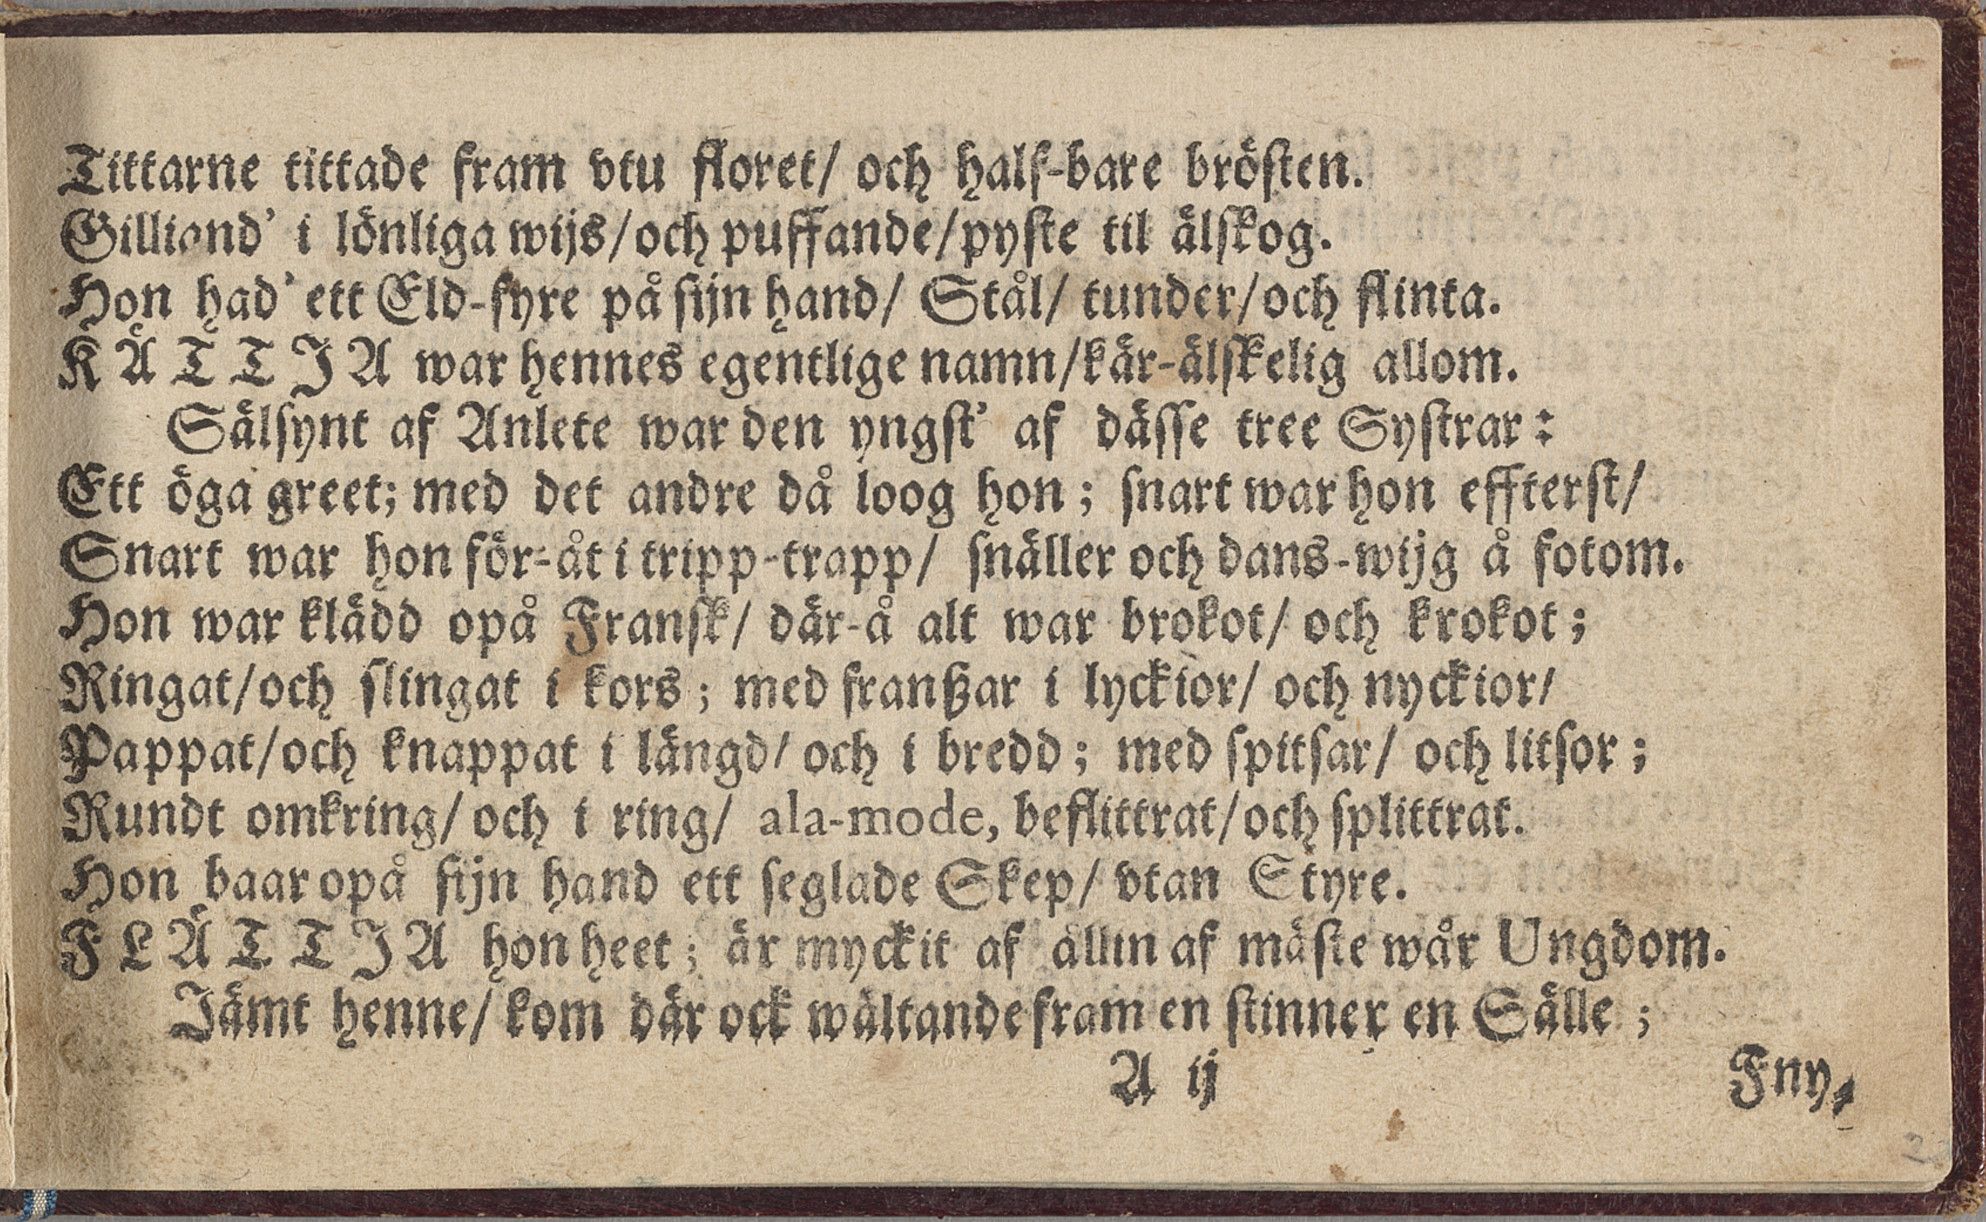 Tittarne tittade fram vtu floret/ och half-bare brösten.
Gilliand' i lönliga wijs/och puffande/pyste til älskog.
Hon had' ett Eld-fyre på sijn hand/ Stål/ tunder/och flinta.
KÄTTJA war hennes egentlige namn/kär-älskelig allom.
Sälsynt af Anlete war den yngst' af dässe tree Systrar:
Ett öga greet; med det andre då loog hon; snart war hon effterst/
Snart war hon för-åt i tripp-trapp/ snäller och dans-wijg å fotom.
Hon war klädd opå Fransk/ där-å alt war brokot/ och krokot;
Ringat/och slingat i kors; med franßar i lyckior/ och nyckior/
Pappat/och knappat i längd/ och i bredd; med spitsar/ och litsor;
Rundt omkring/ och i ring/ ala-mode, beflittrat/och splittrat.
Hon baar opå sijn hand ett seglade Skep/ vtan Styre.
FLÄTTJA hon heet; är myckit af ållin af mäste wår Ungdom.
Jämt henne/ kom där ock wältande fram en stinner en Sälle;
A ij Fny-